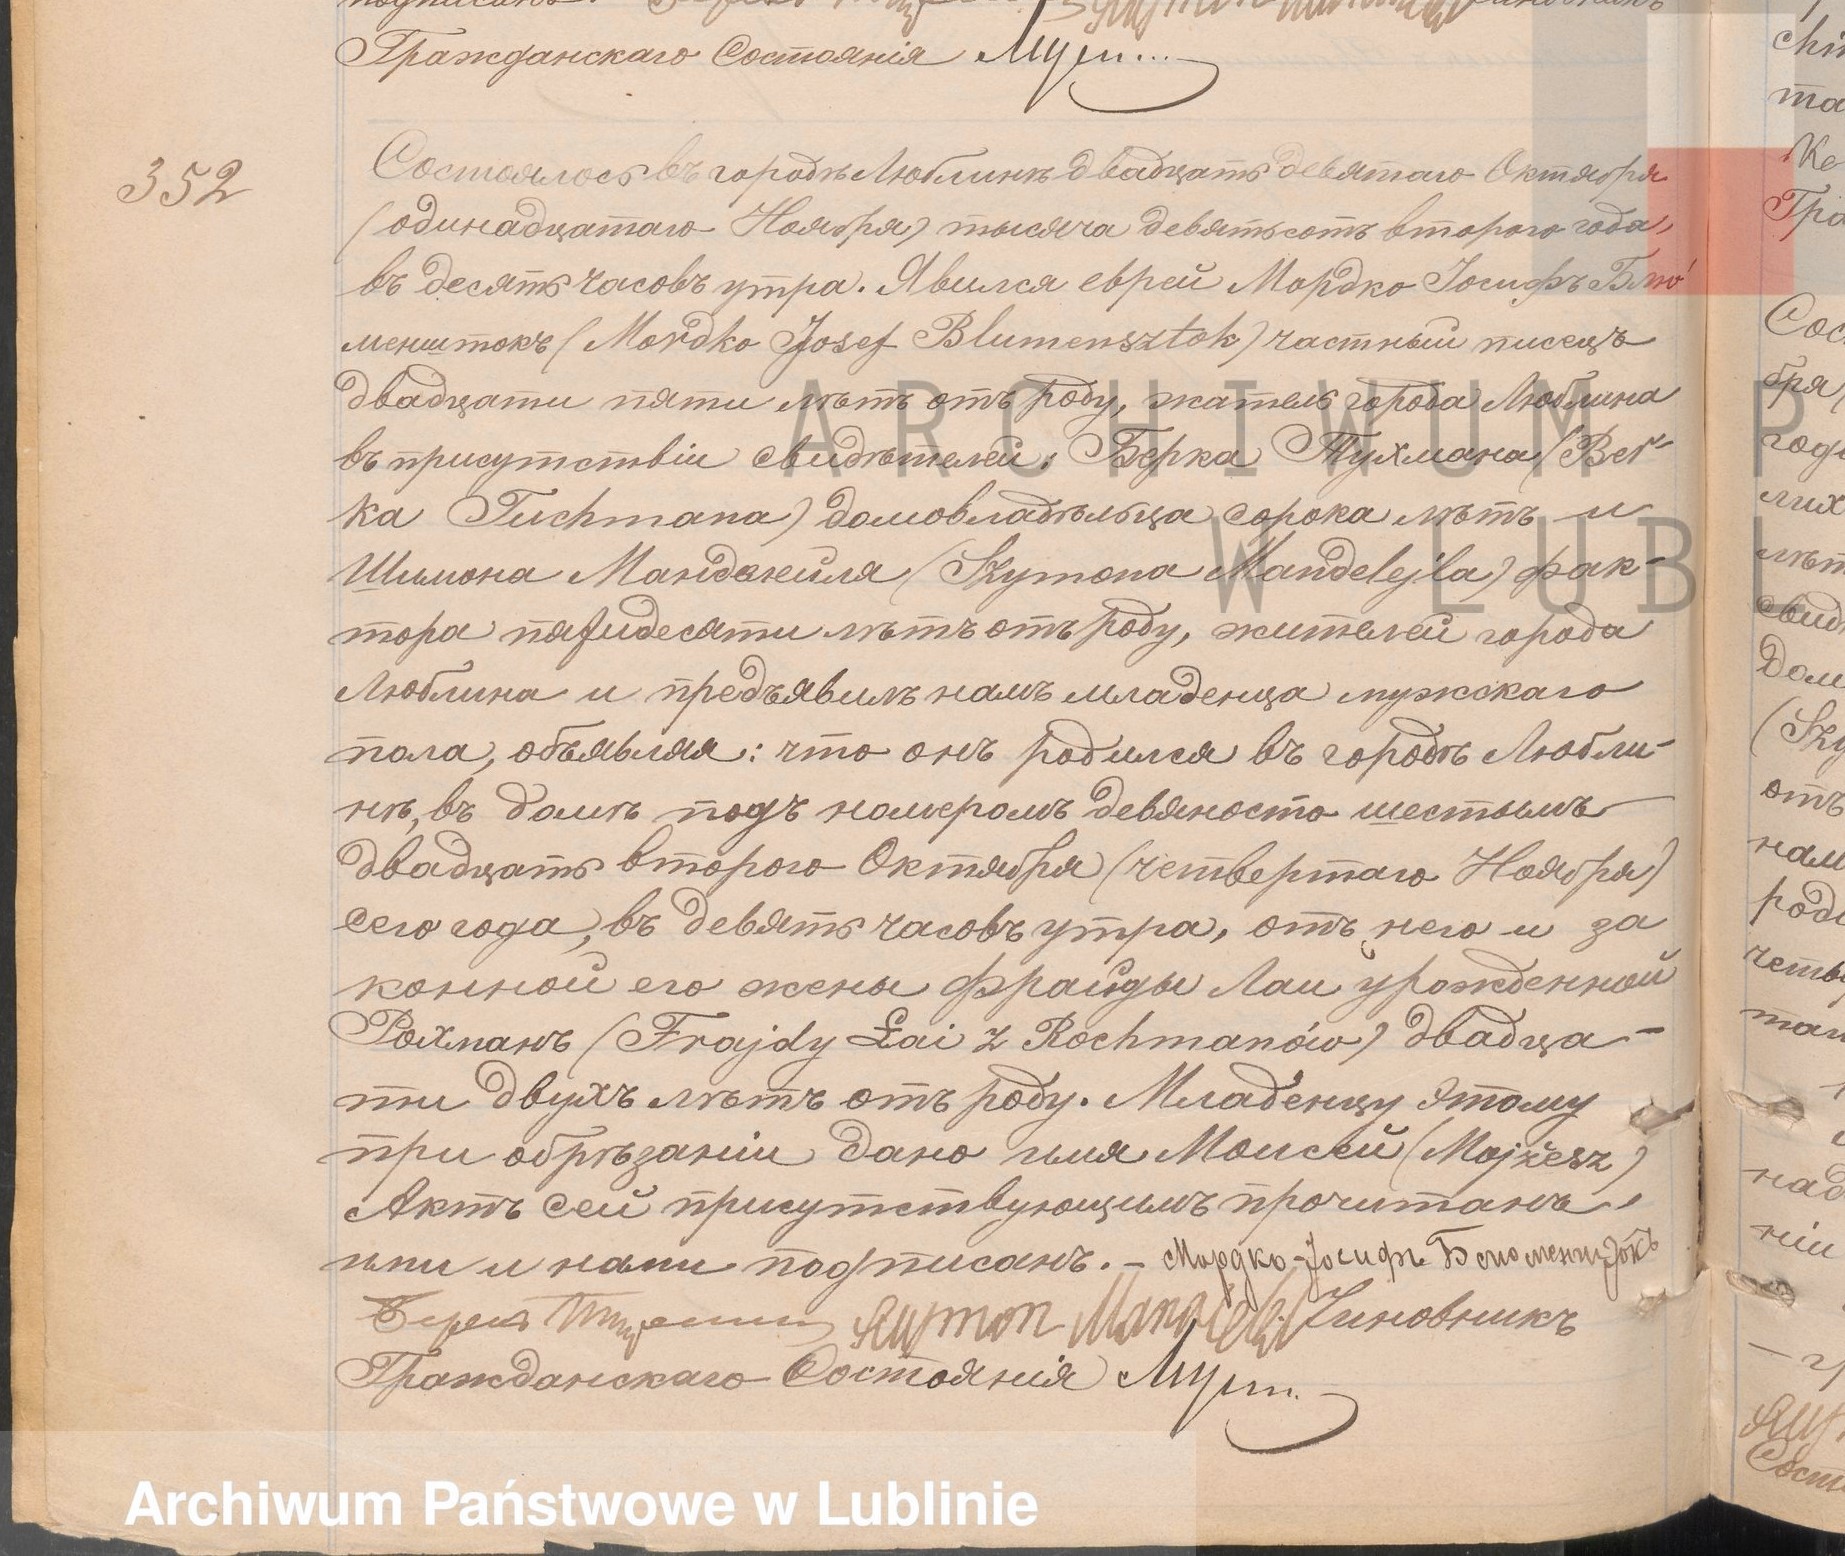 Гражданскаго Состоянія
352
Состоялось въ городѣ Люблинѣ двадцать девятаго Октября
(одинадцатаго Ноября) тысяча девятьсотъ второго года,
въ десять часовъ утра. Явился еврей Мордко Іосифъ Блю
менштокъ (Mordko Josef Blumensztok) частный писецъ
двадцати пяти лѣтъ отъ роду, житель города Люблина
въ присутствіи свидѣтелей: Берка Тухмана (Ber-
ka Tuchmana) домовладѣльца сорока лѣтъ и
Шимона Манделейля (Szymona Mandelejla) фак-
тора пятидесяти лѣтъ отъ роду, жителей города
Люблина и предъявилъ намъ младенца мужскаго
пола, объявляя: что онъ родился въ городѣ Любли-
нѣ, въ домѣ подъ номеромъ девяносто шестымъ
двадцать второго Октября (четвертаго Ноября)
сего года, въ девять часовъ утра, отъ него и за
конной его жены Фрайды Лаи урожденной
Рохманъ (Frajdy Łai z Rochmanów) двадца-
ти двухъ лѣтъ отъ роду. Младенцу этому
при обрѣзаніи дано имя Моисей (Mojżesz)
Актъ сей присутствующимъ прочитанъ,
ими и нами подписанъ. - Мордко-Іосифъ Блюменштокъ
Чиновникъ
Гражданскаго Состоянія
ARCHIWUM P
W LUBL
Archiwum Państwowe w Lublinie